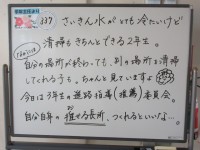 337
さいきん水がとても冷たいけど
清掃もきちんとできる2年生。
自分の場所が終わっても、別の場所を清掃
してくれる子も。ちゃんと見ていますよ
今日は3年生の進路指導(推薦)委員会。
自分自身の推せる長所、つくれるといいな…。